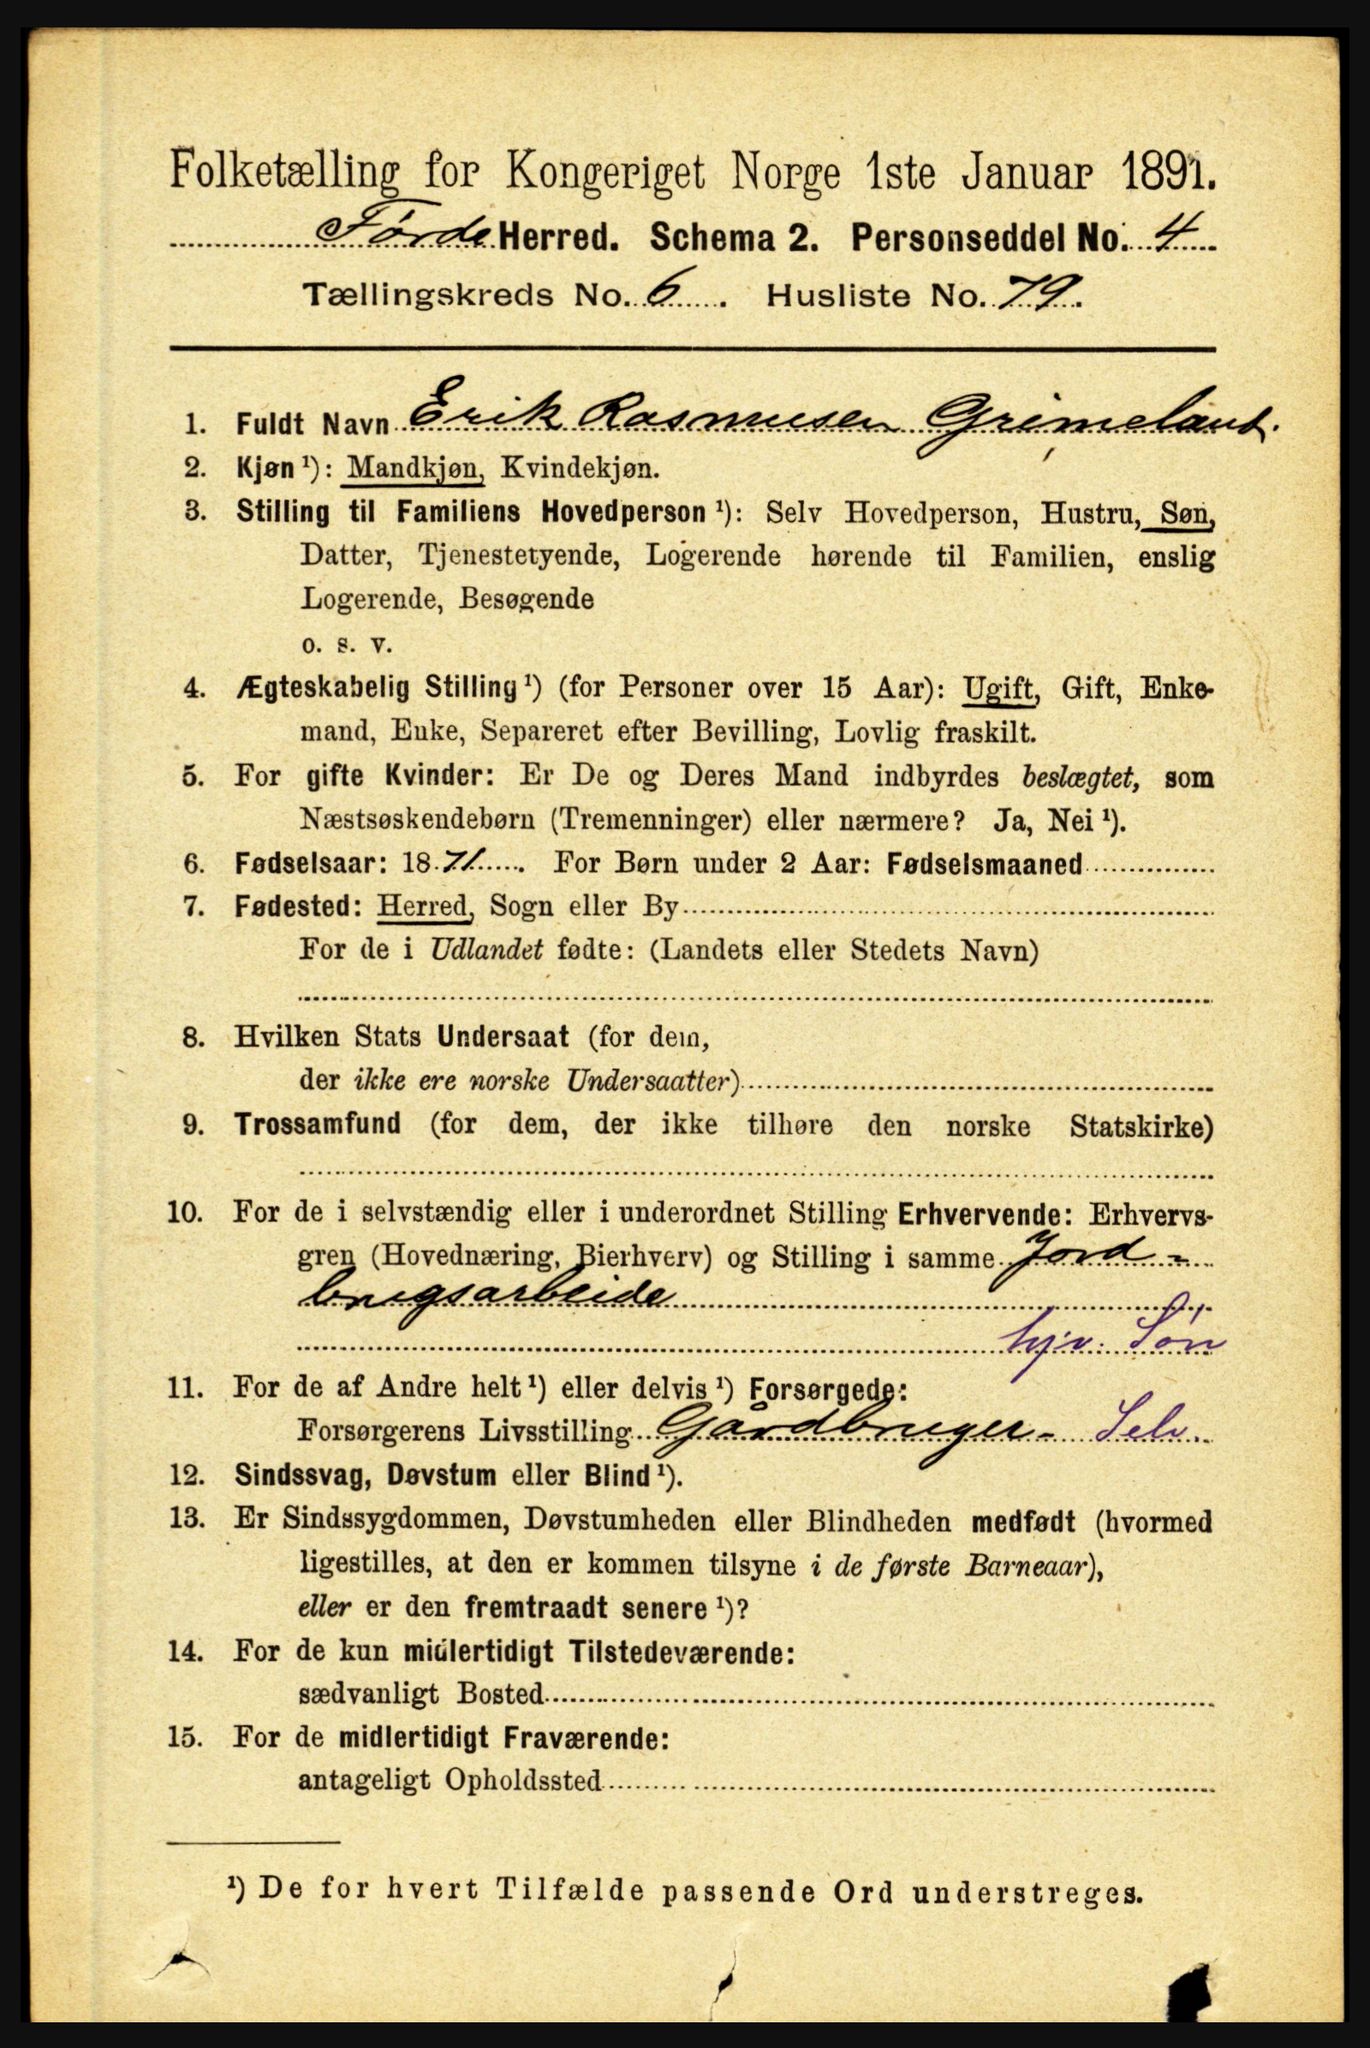 Folketælling for Kongeriget Norge 1ste Januar 1891.
Førde Herred. Schema 2. Personseddel No. 4
Tællingskreds No. 6. Husliste No. 79.
1. Fuldt Navn Erik Rasmusen Grimeland.
2. Kjøn ¹): Mandkjøn, Kvindekjøn.
3. Stilling til Familiens Hovedperson ¹): Selv Hovedperson, Hustru, Søn,
Datter, Tjenestetyende, Logerende hørende til Familien, enslig
Logerende, Besøgende
o. s. v.
4. Ægteskabelig Stilling ¹) (for Personer over 15 Aar): Ugift, Gift, Enke-
mand, Enke, Separeret efter Bevilling, Lovlig fraskilt.
5. For gifte Kvinder: Er De og Deres Mand indbyrdes beslægtet, som
Næstsøskendebørn (Tremenninger) eller nærmere? Ja, Nei ¹).
6. Fødselsaar: 1871. For Børn under 2 Aar: Fødselsmaaned
7. Fødested: Herred, Sogn eller By
For de i Udlandet fødte: (Landets eller Stedets Navn)
8. Hvilken Stats Undersaat (for dem,
der ikke ere norske Undersaatter)
9. Trossamfund (for dem, der ikke tilhøre den norske Statskirke)
10. For de i selvstændig eller i underordnet Stilling Erhvervende: Erhvervs-
gren (Hovednæring, Bierhverv) og Stilling i samme Jord-
brugsarbeide
hjv. Søn
11. For de af Andre helt ¹) eller delvis ¹) Forsørgede:
Forsørgerens Livsstilling Gårdbruger- Selv.
12. Sindssvag, Døvstum eller Blind ¹).
13. Er Sindssygdommen, Døvstumheden eller Blindheden medfødt (hvormed
ligestilles, at den er kommen tilsyne i de første Barneaar),
eller er den fremtraadt senere ¹)?
14. For de kun midlertidigt Tilstedeværende:
sædvanligt Bosted
15. For de midlertidigt Fraværende:
antageligt Opholdssted
¹) De for hvert Tilfælde passende Ord understreges.